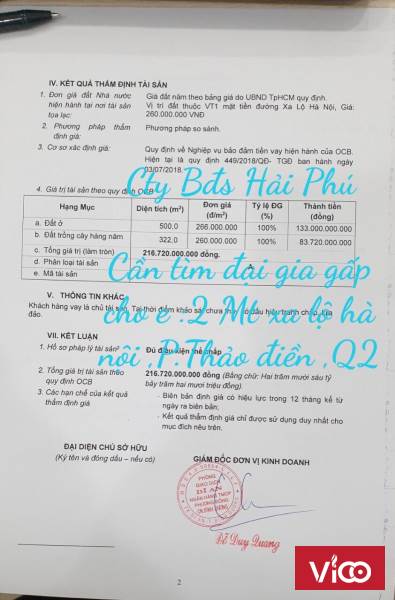 IV. KẾT QUẢ THẨM ĐỊNH TÀI SẢN
1. Đơn giá đất Nhà nước hiện hành tại nơi tài sản tọa lạc:
Giá đất nằm theo bảng giá do UBND TpHCM quy định.
Vị trí đất thuộc VT1 mặt tiền đường Xa Lộ Hà Nội, Giá:
260.000.000 VNĐ
2. Phương pháp thẩm định giá:
Phương pháp so sánh.
3. Cơ sở xác định giá:
Quy định về Nghiệp vụ bảo đảm tiền vay hiện hành của OCB.
Hiện tại là quy định 449/2018/QĐ- TGĐ ban hành ngày
03/07/2018.
Cty Bđs Hải Phú
4. Giá trị tài sản theo quy định OCB
Hạng Mục Diện tích (m²) Đơn giá (đ/m²) Tỷ lệ ĐG (%) Thành tiền (đồng)
a. Đất ở 500,0 266.000.000 100% 133.000.000.000
b. Đất trồng cây hàng năm 322,0 260.000.000 100% 83.720.000.000
c. Tổng giá trị (làm tròn) 216.720.000.000 đồng.
d. Phân loại tài sản
e. Mã tài sản
Cần tìm đại gia gấp
cho e :2 Mt xa lộ hà
nôi ,P.Thảo điền ,Q2
V. THÔNG TIN KHÁC
Khách hàng vay là chủ tài sản. Tại thời điểm khảo sát chưa
đảo.
VII. KẾT LUẬN
1. Hồ sơ pháp lý tài sản
Đủ điều kiện thế chấp
2. Tổng giá trị tài sản theo quy định OCB
216.720.000.000 đồng (Bằng chữ: Hai trăm mười sáu tỷ
bảy trăm hai mươi triệu đồng).
3. Các hạn chế của kết quả thẩm định giá
- Biên bản định giá có hiệu lực trong 12 tháng kể từ
ngày ra biên bản;
- Kết quả thẩm định giá chỉ được sử dụng duy nhất cho
mục đích nêu trên.
ĐẠI DIỆN CHỦ SỞ HỮU
(Ký tên và đóng dấu – nếu có)
GIÁM ĐỐC ĐƠN VỊ KINH DOANH
PHÒNG
GIAO DỊCH
DĨ AN
NGÂN HÀNG TMCP
PHƯƠNG ĐÔNG
Đỗ Duy Quang
2
Vico